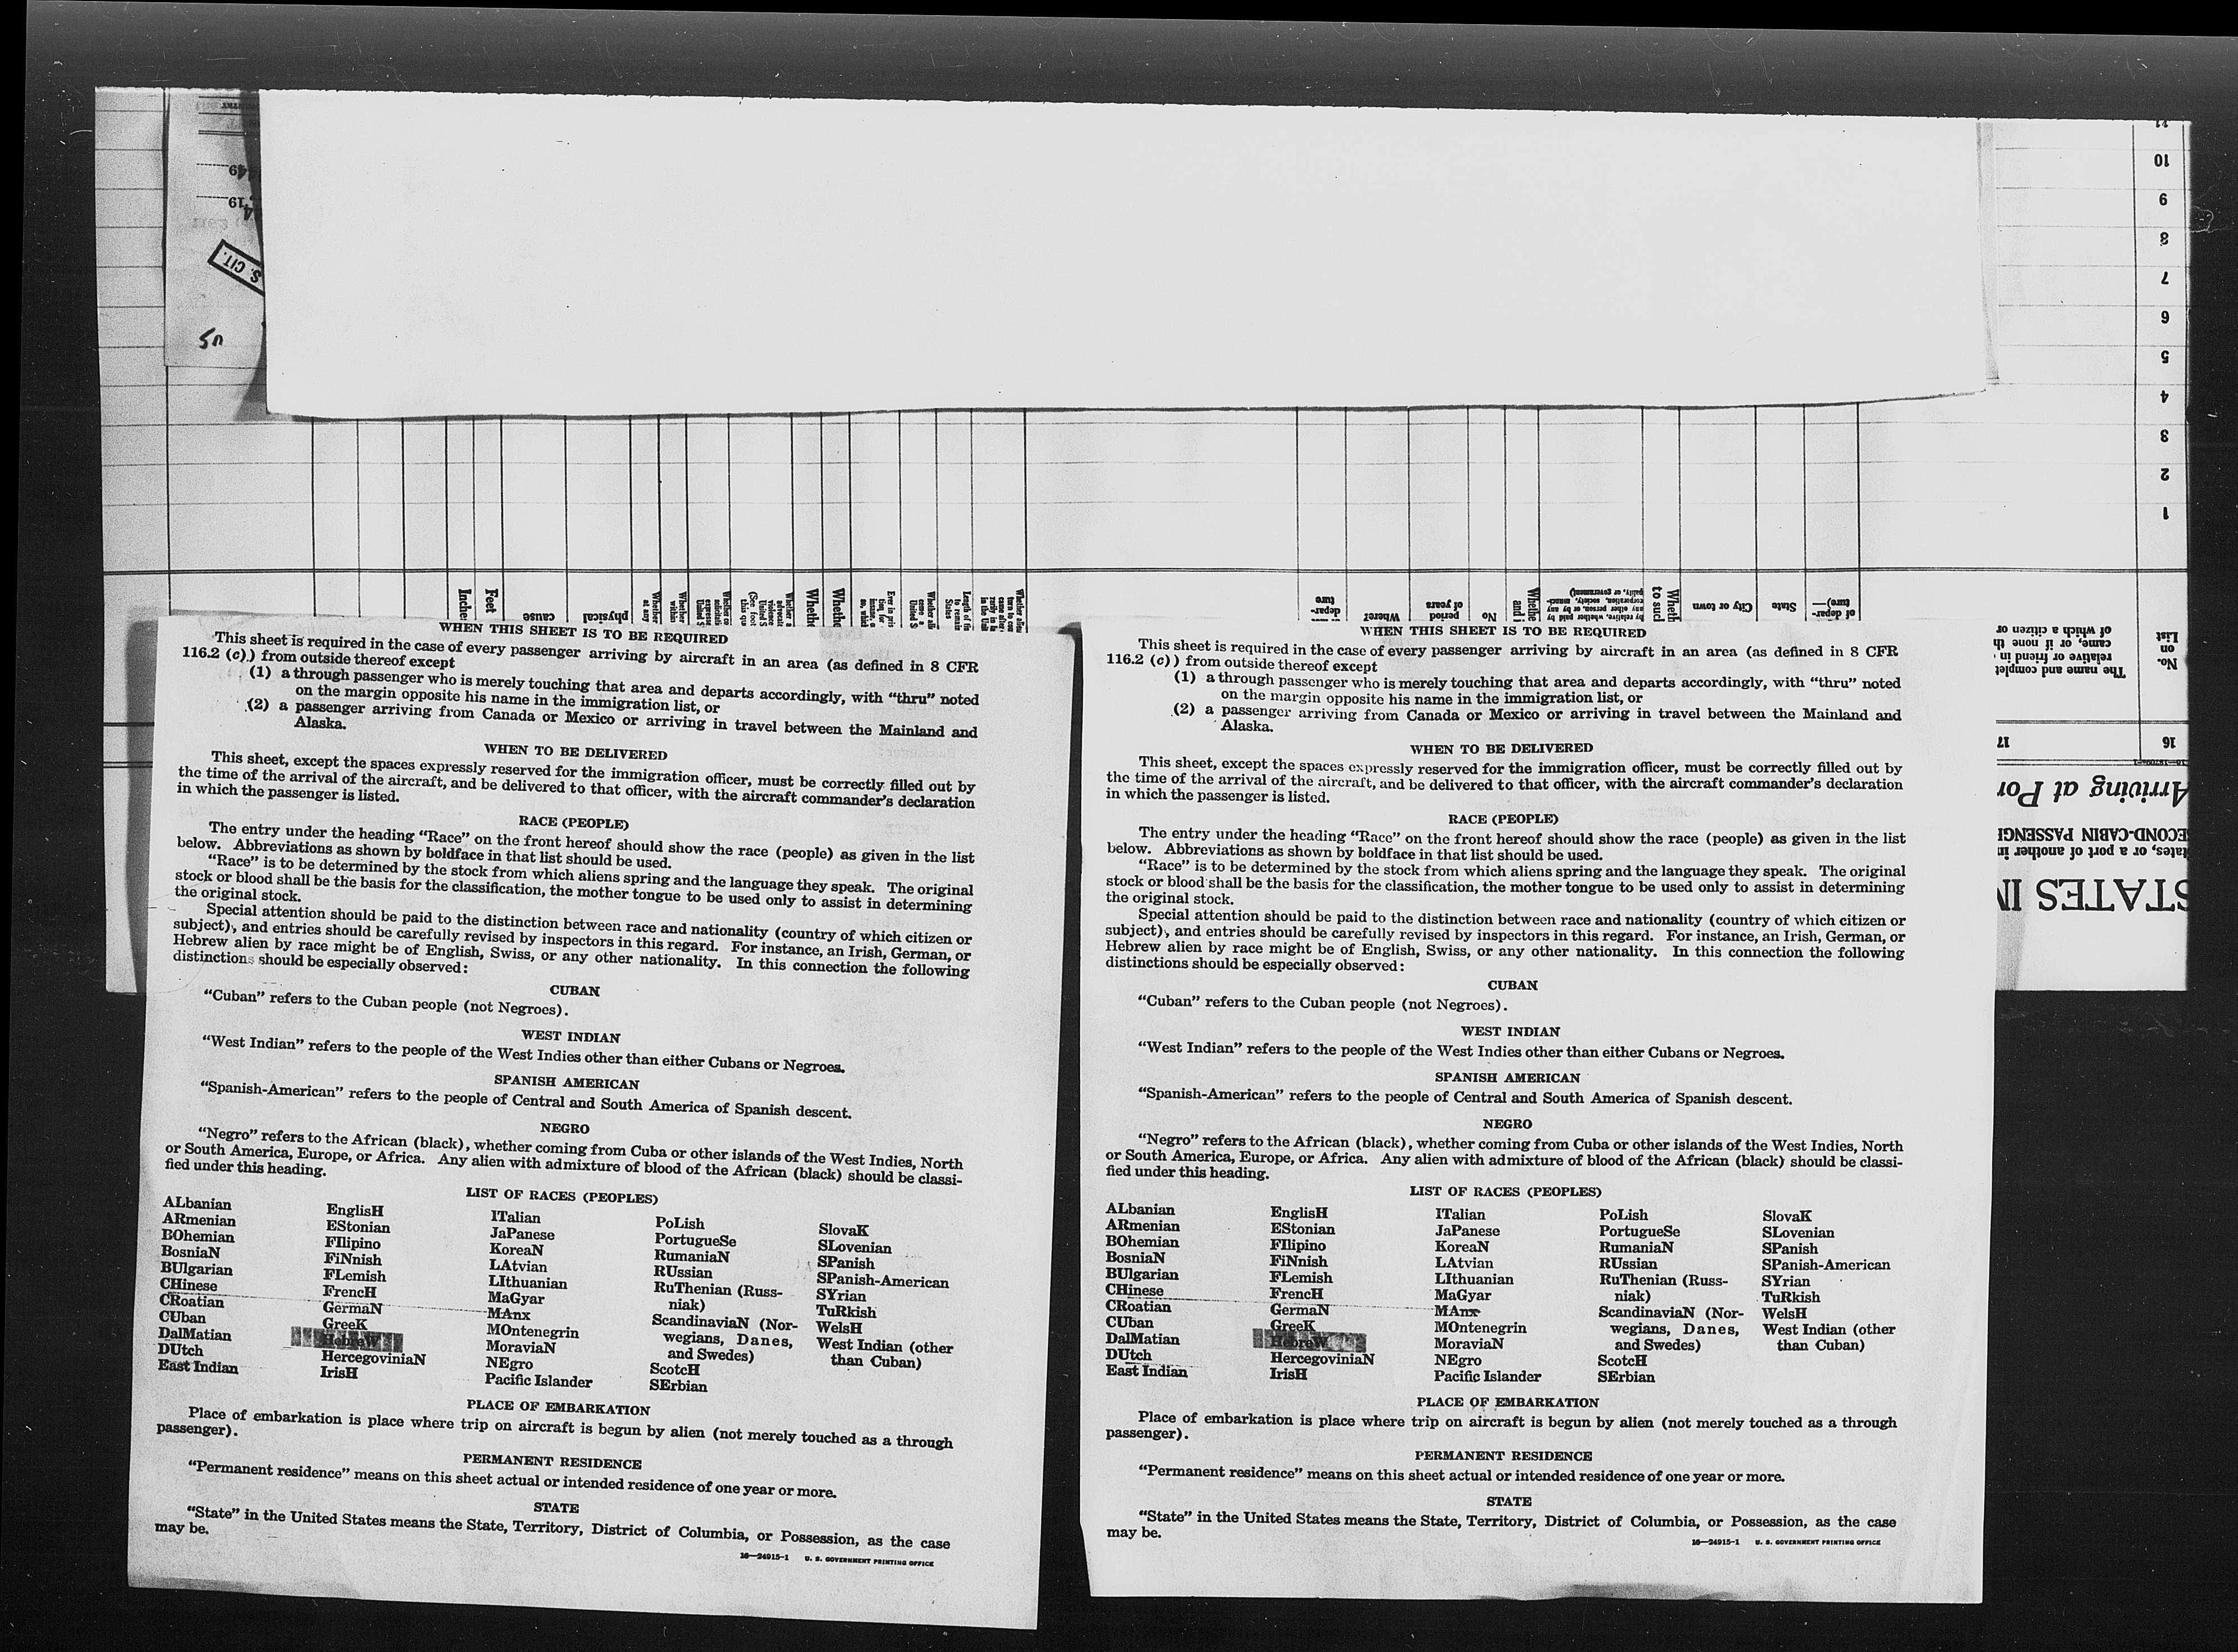 49
19
S. CIT.
11
10
9
8
7
6
5
4
3
2
1
Inche
Feet
cause
physical
Whethe
Whethe
depar-
ture
Where
period
of years
No
by relative, whether paid by
any other person, or by any
corporation, society, munici-
pality, or government)
Wheth
to suc
City or town
State
of depar-
ture)—
No.
on
List
The name and complet
relative or friend in
came, or if none th
of which a citizen or
16
17
Arriving at Por
SECOND-CABIN PASSENGE
tates, or a port of another in
STATES IN
WHEN THIS SHEET IS TO BE REQUIRED
This sheet is required in the case of every passenger arriving by aircraft in an area (as defined in 8 CFR
116.2 (c)) from outside thereof except
(1) a through passenger who is merely touching that area and departs accordingly, with “thru” noted
on the margin opposite his name in the immigration list, or
(2) a passenger arriving from Canada or Mexico or arriving in travel between the Mainland and
Alaska.
WHEN TO BE DELIVERED
This sheet, except the spaces expressly reserved for the immigration officer, must be correctly filled out by
the time of the arrival of the aircraft, and be delivered to that officer, with the aircraft commander’s declaration
in which the passenger is listed.
RACE (PEOPLE)
The entry under the heading “Race” on the front hereof should show the race (people) as given in the list
below. Abbreviations as shown by boldface in that list should be used.
“Race” is to be determined by the stock from which aliens spring and the language they speak. The original
stock or blood shall be the basis for the classification, the mother tongue to be used only to assist in determining
the original stock.
Special attention should be paid to the distinction between race and nationality (country of which citizen or
subject), and entries should be carefully revised by inspectors in this regard. For instance, an Irish, German, or
Hebrew alien by race might be of English, Swiss, or any other nationality. In this connection the following
distinctions should be especially observed:
CUBAN
“Cuban” refers to the Cuban people (not Negroes).
WEST INDIAN
“West Indian” refers to the people of the West Indies other than either Cubans or Negroes.
SPANISH AMERICAN
“Spanish-American” refers to the people of Central and South America of Spanish descent.
NEGRO
“Negro” refers to the African (black), whether coming from Cuba or other islands of the West Indies, North
or South America, Europe, or Africa. Any alien with admixture of blood of the African (black) should be classi-
fied under this heading.
LIST OF RACES (PEOPLES)
ALbanian
ARmenian
BOhemian
BosniaN
BUlgarian
CHinese
CRoatian
CUban
DalMatian
DUtch
East Indian
EnglisH
EStonian
FIlipino
FiNnish
FLemish
FrencH
GermaN
GreeK
HebreW
HercegoviniaN
IrisH
ITalian
JaPanese
KoreaN
LAtvian
LIthuanian
MaGyar
MAnx
MOntenegrin
MoraviaN
NEgro
Pacific Islander
PoLish
PortugueSe
RumaniaN
RUssian
RuThenian (Russ-
niak)
ScandinaviaN (Nor-
wegians, Danes,
and Swedes)
ScotcH
SErbian
SlovaK
SLovenian
SPanish
SPanish-American
SYrian
TuRkish
WelsH
West Indian (other
than Cuban)
PLACE OF EMBARKATION
Place of embarkation is place where trip on aircraft is begun by alien (not merely touched as a through
passenger).
PERMANENT RESIDENCE
“Permanent residence” means on this sheet actual or intended residence of one year or more.
STATE
“State” in the United States means the State, Territory, District of Columbia, or Possession, as the case
may be.
16—24915-1 U. S. GOVERNMENT PRINTING OFFICE
WHEN THIS SHEET IS TO BE REQUIRED
This sheet is required in the case of every passenger arriving by aircraft in an area (as defined in 8 CFR
116.2 (c)) from outside thereof except
(1) a through passenger who is merely touching that area and departs accordingly, with “thru” noted
on the margin opposite his name in the immigration list, or
(2) a passenger arriving from Canada or Mexico or arriving in travel between the Mainland and
Alaska.
WHEN TO BE DELIVERED
This sheet, except the spaces expressly reserved for the immigration officer, must be correctly filled out by
the time of the arrival of the aircraft, and be delivered to that officer, with the aircraft commander’s declaration
in which the passenger is listed.
RACE (PEOPLE)
The entry under the heading “Race” on the front hereof should show the race (people) as given in the list
below. Abbreviations as shown by boldface in that list should be used.
“Race” is to be determined by the stock from which aliens spring and the language they speak. The original
stock or blood shall be the basis for the classification, the mother tongue to be used only to assist in determining
the original stock.
Special attention should be paid to the distinction between race and nationality (country of which citizen or
subject), and entries should be carefully revised by inspectors in this regard. For instance, an Irish, German, or
Hebrew alien by race might be of English, Swiss, or any other nationality. In this connection the following
distinctions should be especially observed:
CUBAN
“Cuban” refers to the Cuban people (not Negroes).
WEST INDIAN
“West Indian” refers to the people of the West Indies other than either Cubans or Negroes.
SPANISH AMERICAN
“Spanish-American” refers to the people of Central and South America of Spanish descent.
NEGRO
“Negro” refers to the African (black), whether coming from Cuba or other islands of the West Indies, North
or South America, Europe, or Africa. Any alien with admixture of blood of the African (black) should be classi-
fied under this heading.
LIST OF RACES (PEOPLES)
ALbanian
ARmenian
BOhemian
BosniaN
BUlgarian
CHinese
CRoatian
CUban
DalMatian
DUtch
East Indian
EnglisH
EStonian
FIlipino
FiNnish
FLemish
FrencH
GermaN
GreeK
HebreW
HercegoviniaN
IrisH
ITalian
JaPanese
KoreaN
LAtvian
LIthuanian
MaGyar
MAnx
MOntenegrin
MoraviaN
NEgro
Pacific Islander
PoLish
PortugueSe
RumaniaN
RUssian
RuThenian (Russ-
niak)
ScandinaviaN (Nor-
wegians, Danes,
and Swedes)
ScotcH
SErbian
SlovaK
SLovenian
SPanish
SPanish-American
SYrian
TuRkish
WelsH
West Indian (other
than Cuban)
PLACE OF EMBARKATION
Place of embarkation is place where trip on aircraft is begun by alien (not merely touched as a through
passenger).
PERMANENT RESIDENCE
“Permanent residence” means on this sheet actual or intended residence of one year or more.
STATE
“State” in the United States means the State, Territory, District of Columbia, or Possession, as the case
may be.
16—24915-1 U. S. GOVERNMENT PRINTING OFFICE